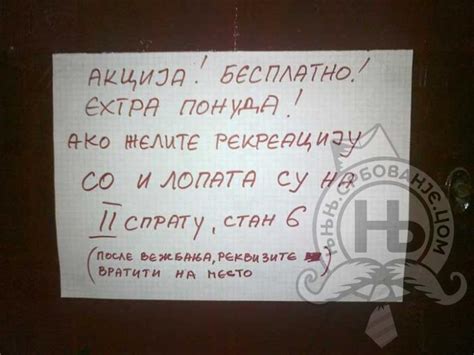 АКЦИЈА! БЕСПЛАТНО!
EXTRA ПОНУДА!
АКО ЖЕЛИТЕ РЕКРЕАЦИЈУ
СО И ЛОПАТА СУ НА
II СПРАТУ, СТАН 6
(ПОСЛЕ ВЕЖБАЊА, РЕКВИЗИТЕ
ВРАТИТИ НА МЕСТО)
ЊЊЊ.СРБОВАЊЕ.ЦОМ
Њ